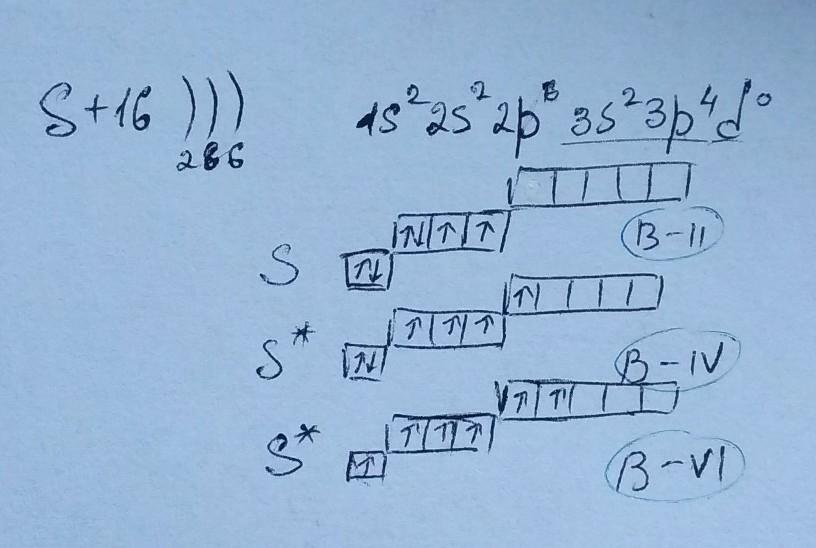 S+16 ))) 1s²2s²2p⁶ 3s²3p⁴d⁰
286
S ↑↓ ↑↓ ↑ ↑ B-II
S* ↑↓ ↑ ↑ ↑ ↑ B-IV
S* ↑ ↑ ↑ ↑ ↑ ↑ B-VI